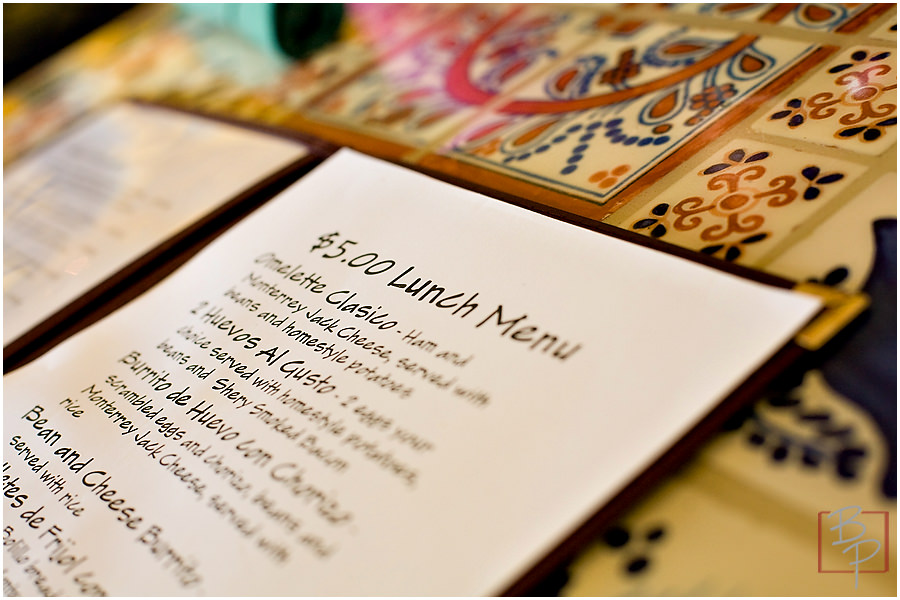 $5.00 Lunch Menu
Omelette Clasico - Ham and
Monterrey Jack Cheese, served with
beans and homestyle potatoes
2 Huevos Al Gusto - 2 eggs your
choice served with homestyle potatoes,
beans and Shery Smoked Bacon
Burrito de Huevo Con Chorizo -
scrambled eggs and chorizo, beans and
Monterrey Jack Cheese, served with
rice
Bean and Cheese Burrito
served with rice
de Frijol con
Bolillo bread
BP